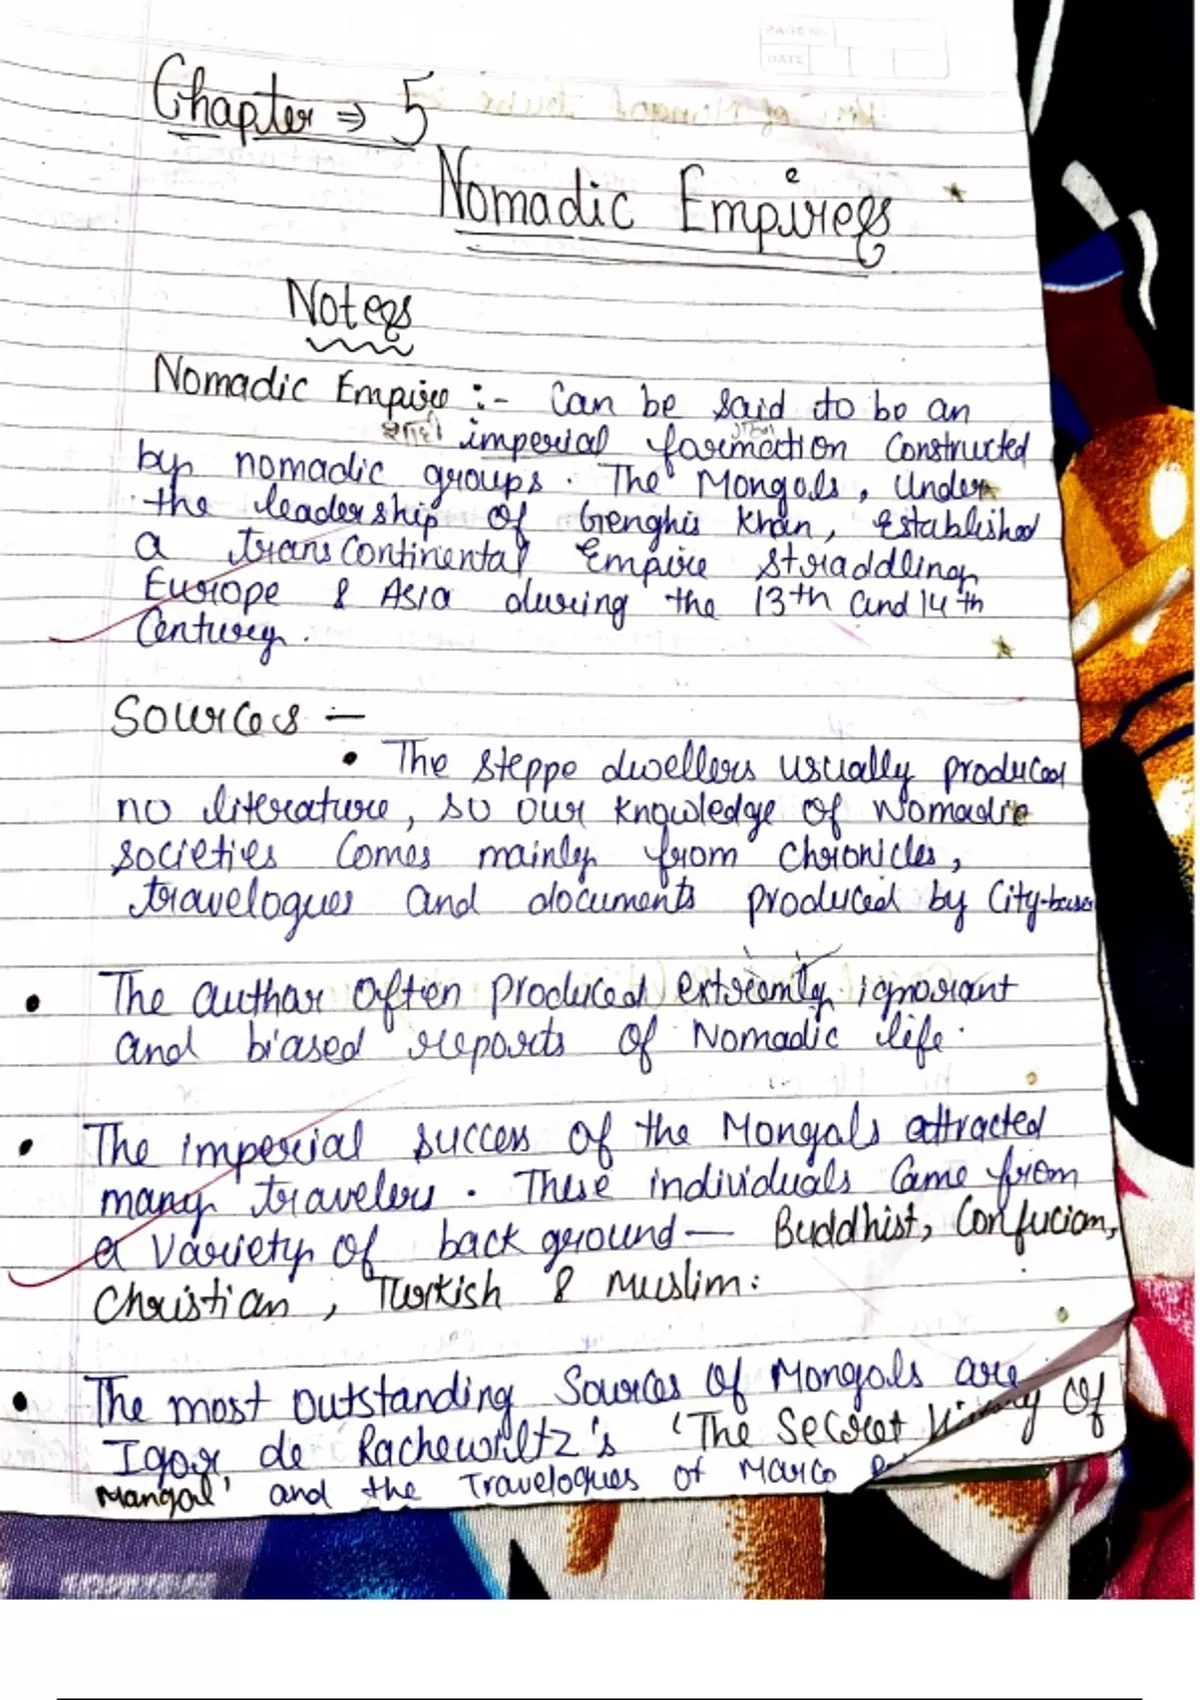 PAGE NO.
DATE
Chapter ⇒ 5
Nomadic Empires
Notes
Nomadic Empire :- Can be said to be an
शाही imperial formation Constructed
by nomadic groups. The Mongols, Under
the leadership of Genghis Khan, Established
a trans Continental Empire straddling
Europe & Asia during the 13th and 14th
Century.
Sources —
• The steppe dwellers usually produced
no literature, so our knowledge of Nomadic
societies Comes mainly from chronicles,
travelogues and documents produced by City-based
• The authar often produced extremly ignorant
and biased reports of Nomadic life.
• The imperial success of the Mongals attracted
many travelers. These individuals Came from
a variety of back ground — Buddhist, Confucian,
Christian, Turkish & Muslim:
• The most outstanding Sources of Mongols are
Igor de Rachewiltz's 'The Secret of
Mangal' and the Travelogues of Marco